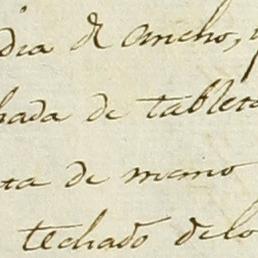 dia de ancho, y
hada de tableta
ta de mano
techado delo